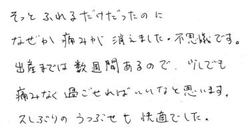 そっと ふれるだけだったのに
なぜか 痛みが 消えました。不思議です。
出産までは 数週間あるので、少しでも
痛みなく 過ごせればいいなと思います。
久しぶりの うつぶせも 快適でした。